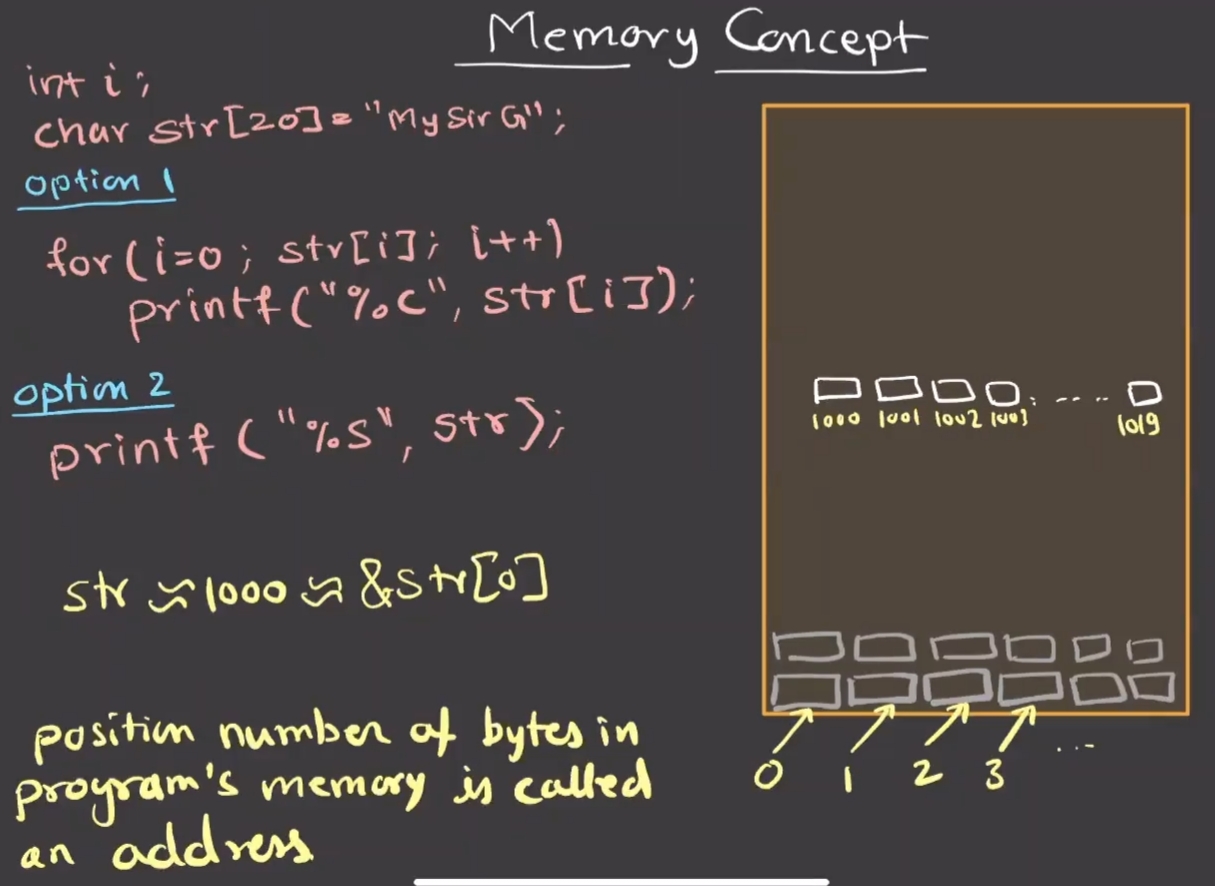 Memory Concept
int i;
char str[20]="MySirG";
option 1
for(i=0; str[i]; i++)
printf("%c", str[i]);
option 2
printf("%s", str);
str ≈ 1000 ≈ &str[0]
position number of bytes in
program's memory is called
an address
1000 1001 1002 1003 ..... 1019
0 1 2 3 ...